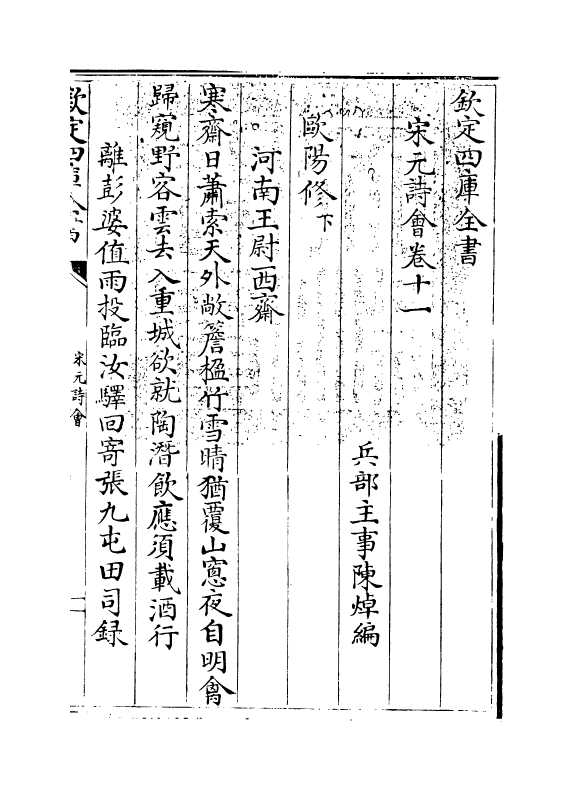 欽定四庫全書
宋元詩會卷十一
兵部主事陳焯編
歐陽修下
河南王尉西齋
寒齋日蕭索天外敞簷楹竹雪晴猶覆山窻夜自明禽
歸窺野客雲去入重城欲就陶潛飲應須載酒行
離彭婆值雨投臨汝驛回寄張九屯田司録
欽定四庫全書
宋元詩會
一